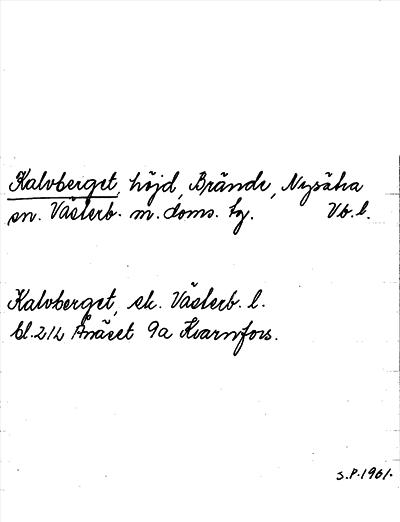 Kalvberget, höjd, Brände, Nysätra
sn. Västerb. m. doms. tg. Vb. l.
Kalvberget, ek. Västerb. l.
bl. 212 Ånäset 9a Kvarnfors.
S.P. 1961.